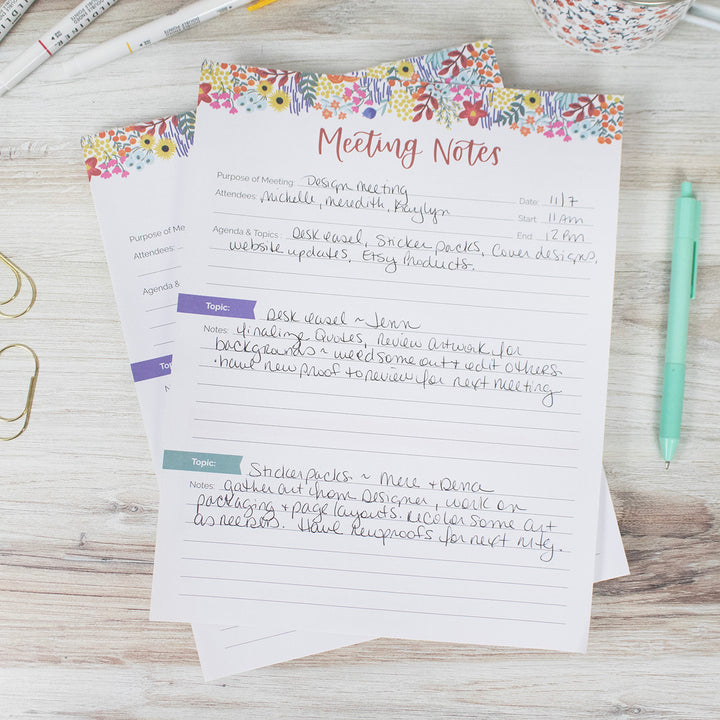 Meeting Notes
Purpose of Meeting: Design meeting
Date: 11/7
Attendees: Michelle, Meredith, Kaylyn
Start: 11 Am
End: 12 Pm
Agenda & Topics: Desk easel, Sticker packs, Cover designs,
website updates, Etsy Products.
Topic: Desk easel ~ Jenn
Notes: finalize Quotes, Review artwork for
backgrounds ~ weed some out + edit others.
· have new proof to review for next meeting
Topic: Sticker packs ~ Mere + Dena
Notes: gather art from Designer, work on
packaging + page layouts. Recolor some art
as needed. Have new proofs for next mtg.
Purpose of Me
Attendees:
Agenda &
To